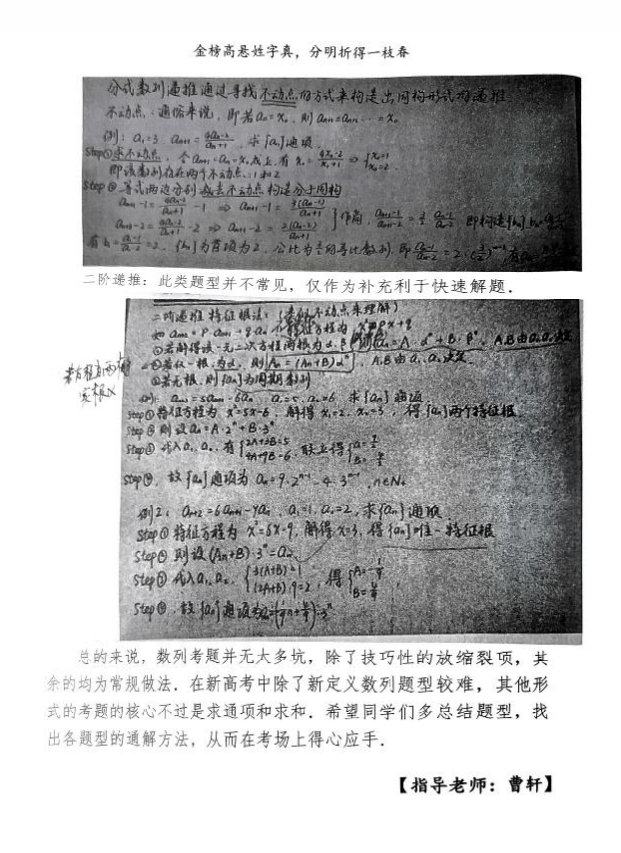 金榜高悬姓字真，分明折得一枝春
分式数列递推通过寻找不动点的方式来构造出同构形式的递推
不动点：通俗来说，即若aₙ=x₀，则aₙ₊₁=aₙ₊₂…=x₀
例：a₁=3 aₙ₊₁=(4aₙ-2)/(aₙ+1)，求{aₙ}通项
Step①求不动点，令aₙ₊₁=aₙ=x₀ 有x₀=(4x₀-2)/(x₀+1) ⇒ {x₀=1 x₀=2
即该数列存在两个不动点：1和2
Step② 等式两边分别减去不动点 构造分子同构
aₙ₊₁-1=(4aₙ-2)/(aₙ+1)-1 ⇒ aₙ₊₁-1=3(aₙ-1)/(aₙ+1)
aₙ₊₁-2=(4aₙ-2)/(aₙ+1)-2 ⇒ aₙ₊₁-2=2(aₙ-2)/(aₙ+1) } 作商，(aₙ₊₁-1)/(aₙ₊₁-2)=3/2·(aₙ-1)/(aₙ-2) 即构造{bₙ}
{bₙ}为首项为2，公比为3/2的等比数列，即(aₙ-1)/(aₙ-2)=2·(3/2)ⁿ⁻¹
二阶递推：此类题型并不常见，仅作为补充利于快速解题．
二阶递推 特征根法：（类似不动点来理解）
如 aₙ₊₂=P·aₙ₊₁+q·aₙ 特征方程为 x²=px+q
①若解得该一元二次方程两根为α、β 则aₙ=A·αⁿ+B·βⁿ，A.B由a₁.a₂决定
②若仅一根为α，则aₙ=(An+B)αⁿ，A.B由a₁.a₂决定
③若无根，则{aₙ}为周期数列
若方程有两个
实根
例：aₙ₊₂=5aₙ₊₁-6aₙ，a₁=5，a₂=6 求{aₙ}通项
Step①特征方程为 x²=5x-6，解得x₁=2，x₂=3，得{aₙ}两个特征根
Step②则设aₙ=A·2ⁿ+B·3ⁿ
Step③代入a₁.a₂，有{2A+3B=5 4A+9B=6，联立得
Step④，故{aₙ}通项为aₙ=9·2ⁿ⁻¹-4·3ⁿ⁻¹，n∈N₊
例2：aₙ₊₂=6aₙ₊₁-9aₙ，a₁=1，a₂=2，求{aₙ}通项
Step①特征方程为 x²=6x-9，解得x=3，得{aₙ}唯一特征根
Step②则设(An+B)·3ⁿ=aₙ
Step③代入a₁、a₂，{3(A+B)=1 (2A+B)·9=2，得{A=-1/9 B=4/9
Step④，故{aₙ}通项为aₙ=(-1/9n+4/9)·3ⁿ
总的来说，数列考题并无太多坑，除了技巧性的放缩裂项，其
余的均为常规做法．在新高考中除了新定义数列题型较难，其他形
式的考题的核心不过是求通项和求和．希望同学们多总结题型，找
出各题型的通解方法，从而在考场上得心应手．
【指导老师：曹轩】